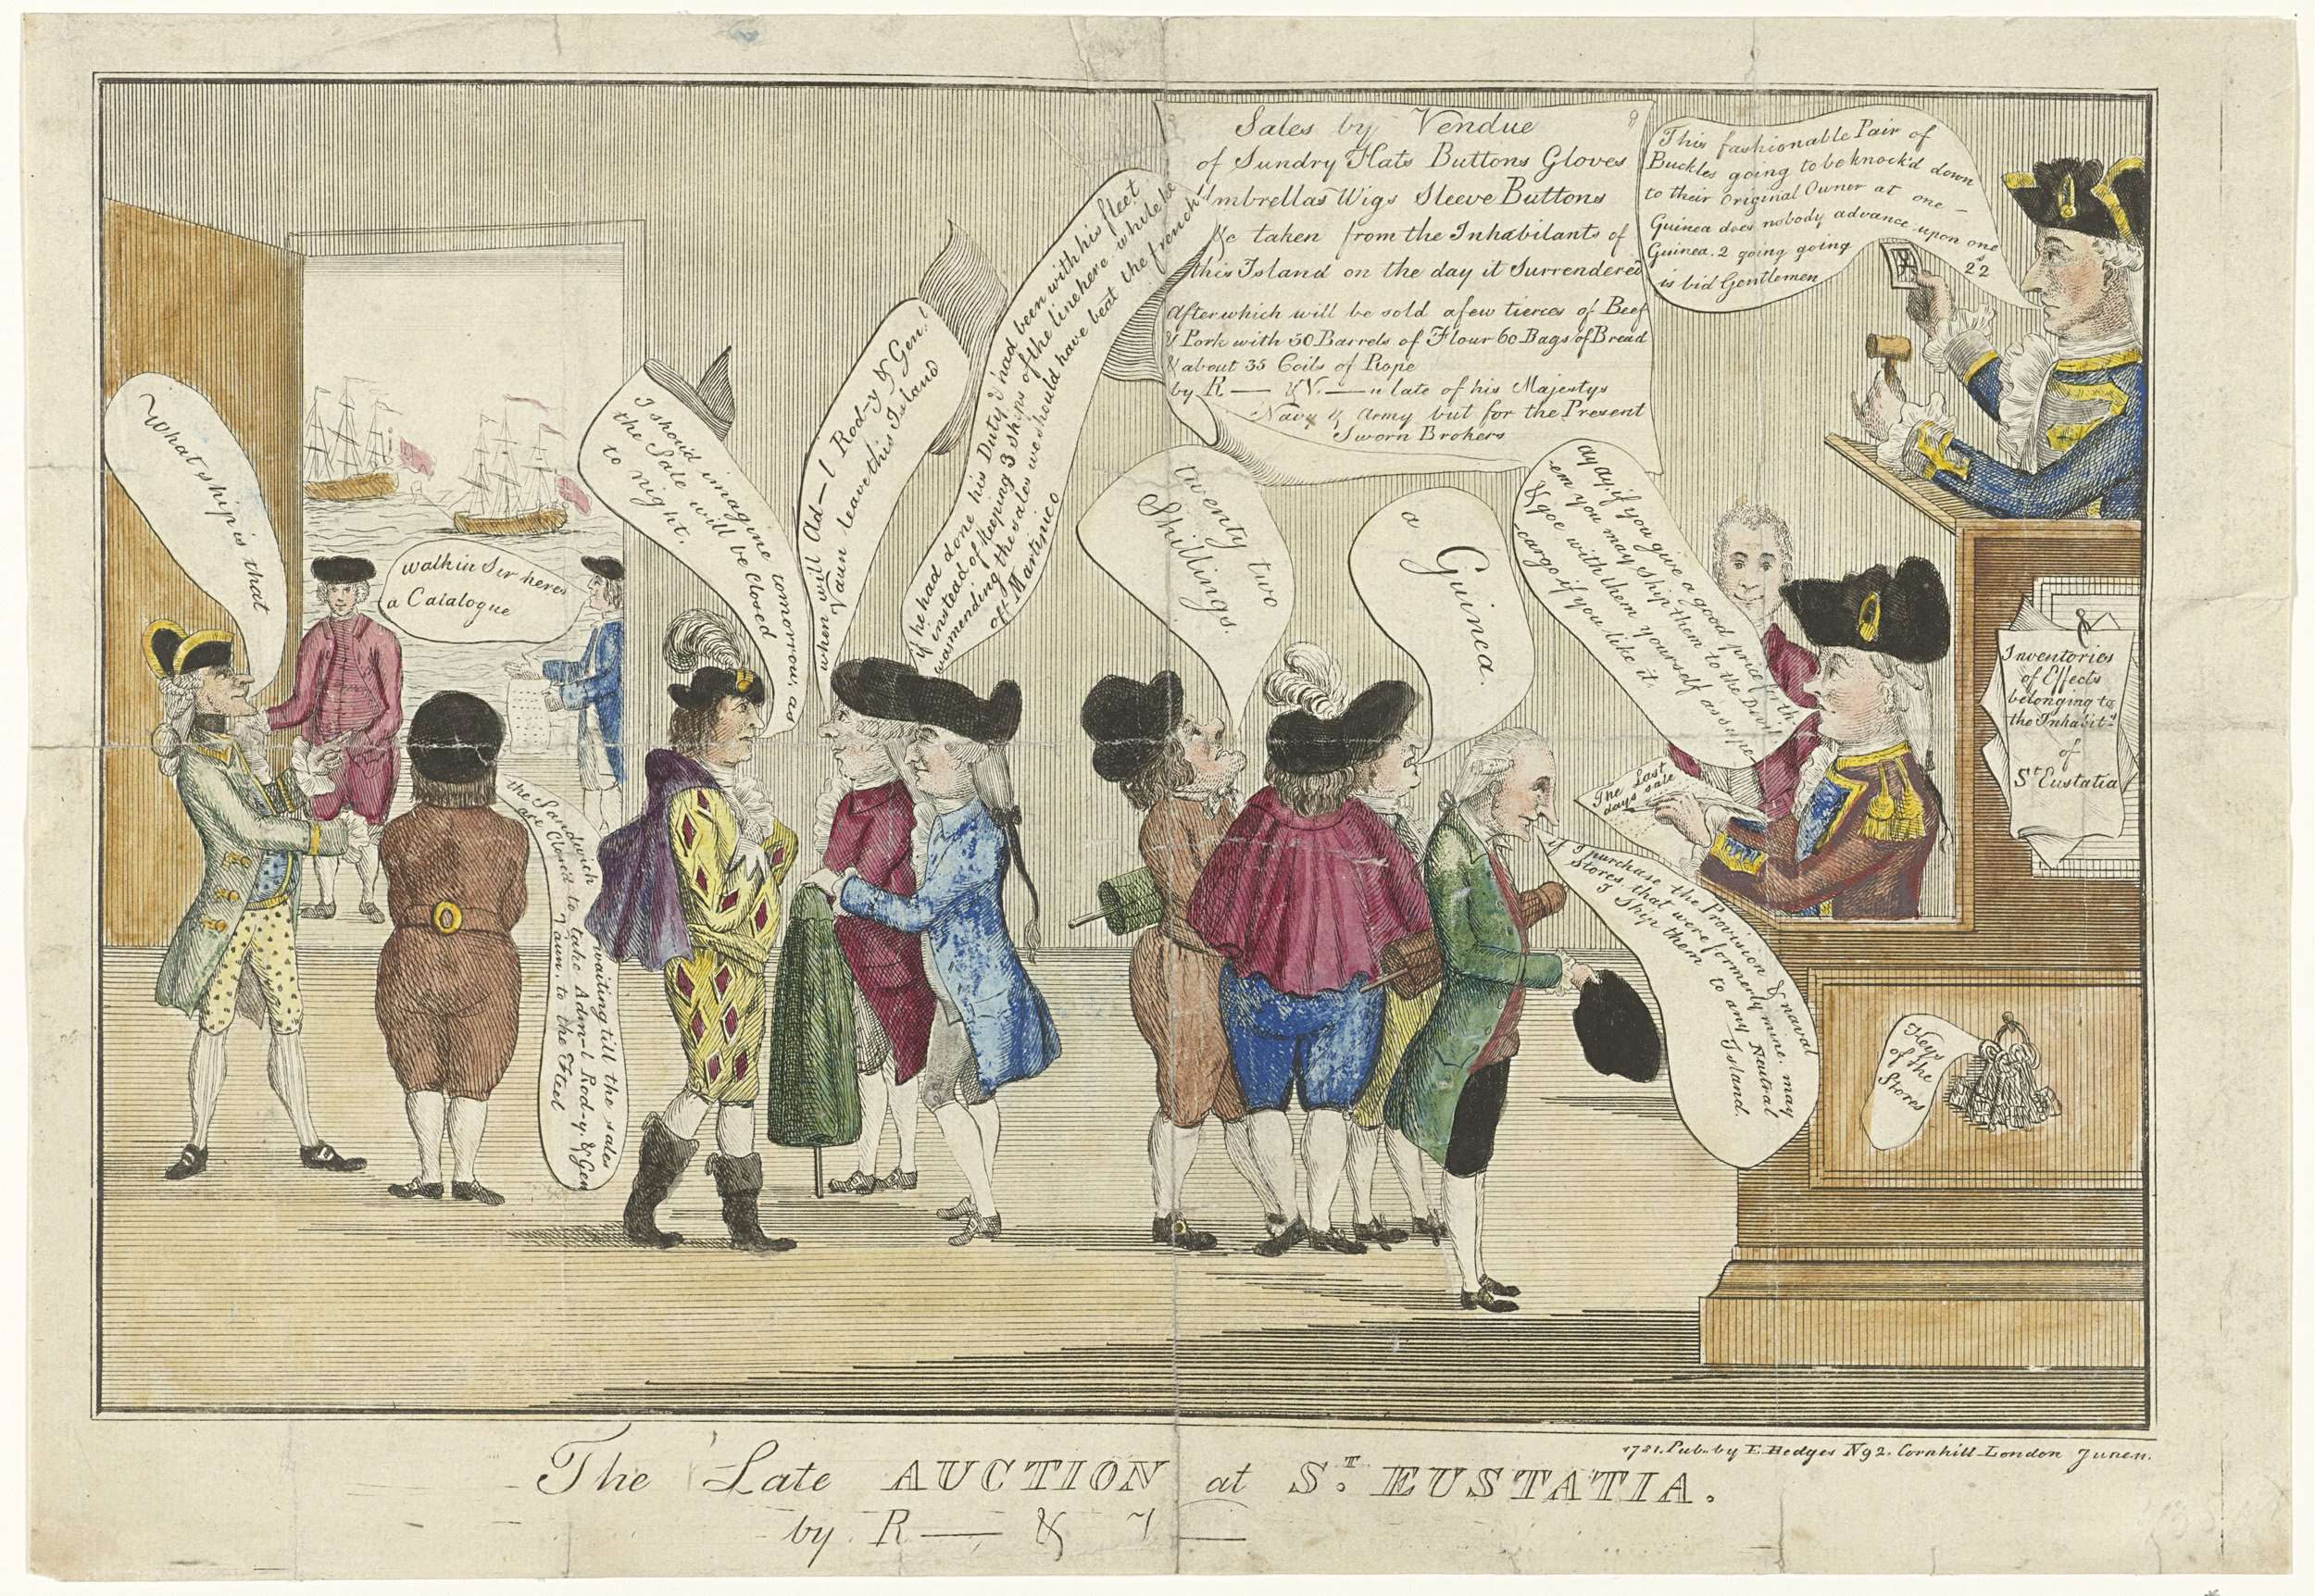 Sales by Vendue
of Sundry Hats Buttons Gloves
Umbrellas Wigs Sleeve Buttons
&c taken from the Inhabitants of
this Island on the day it Surrendered
Afterwhich will be sold afew tierces of Beef
& Pork with 50 Barrels of Flour 60 Bags of Bread
& about 35 Coils of Rope
by R— & V—n late of his Majestys
Navy & Army but for the Present
Sworn Brokers
This fashionable Pair of
Buckles going to be knock'd down
to their Original Owner at one
Guinea does nobody advance upon one
Guinea. 2 going going 22s
is bid Gentlemen
What ship is that
walk in Sir heres
a Catalogue
the Sandwich waiting till the sales
are Closed to take Adm—l Rod—y. & Gen
Vaun to the Fleet
I should imagine tomorrow as
the Sale will be Closed
to night.
when will Ad—l Rod—y & Genl
Vaun leave this Island
if he had done his Duty & had been with his fleet
instead of keeping 3 Ships of the line here while he
was mending the sales we should have beat the french
off Martinico
twenty two
Shillings.
a
Guinea.
ay ay. if you give a good price forth
em you may ship them to the Divil
& goe with them yourself as super
cargo if you like it.
The Last
days sale
if I purchase the Provision & naval
Stores that were formerly mine. may
I Ship them to any Neutral
Island.
Inventories
of Effects
belonging to
the Inhabits
of
St Eustatia
Keys
of the
Stores
1781. Pub. by E. Hedges N 92. Cornhill London June 11.
The Late AUCTION at ST. EUSTATIA.
by R— & V—